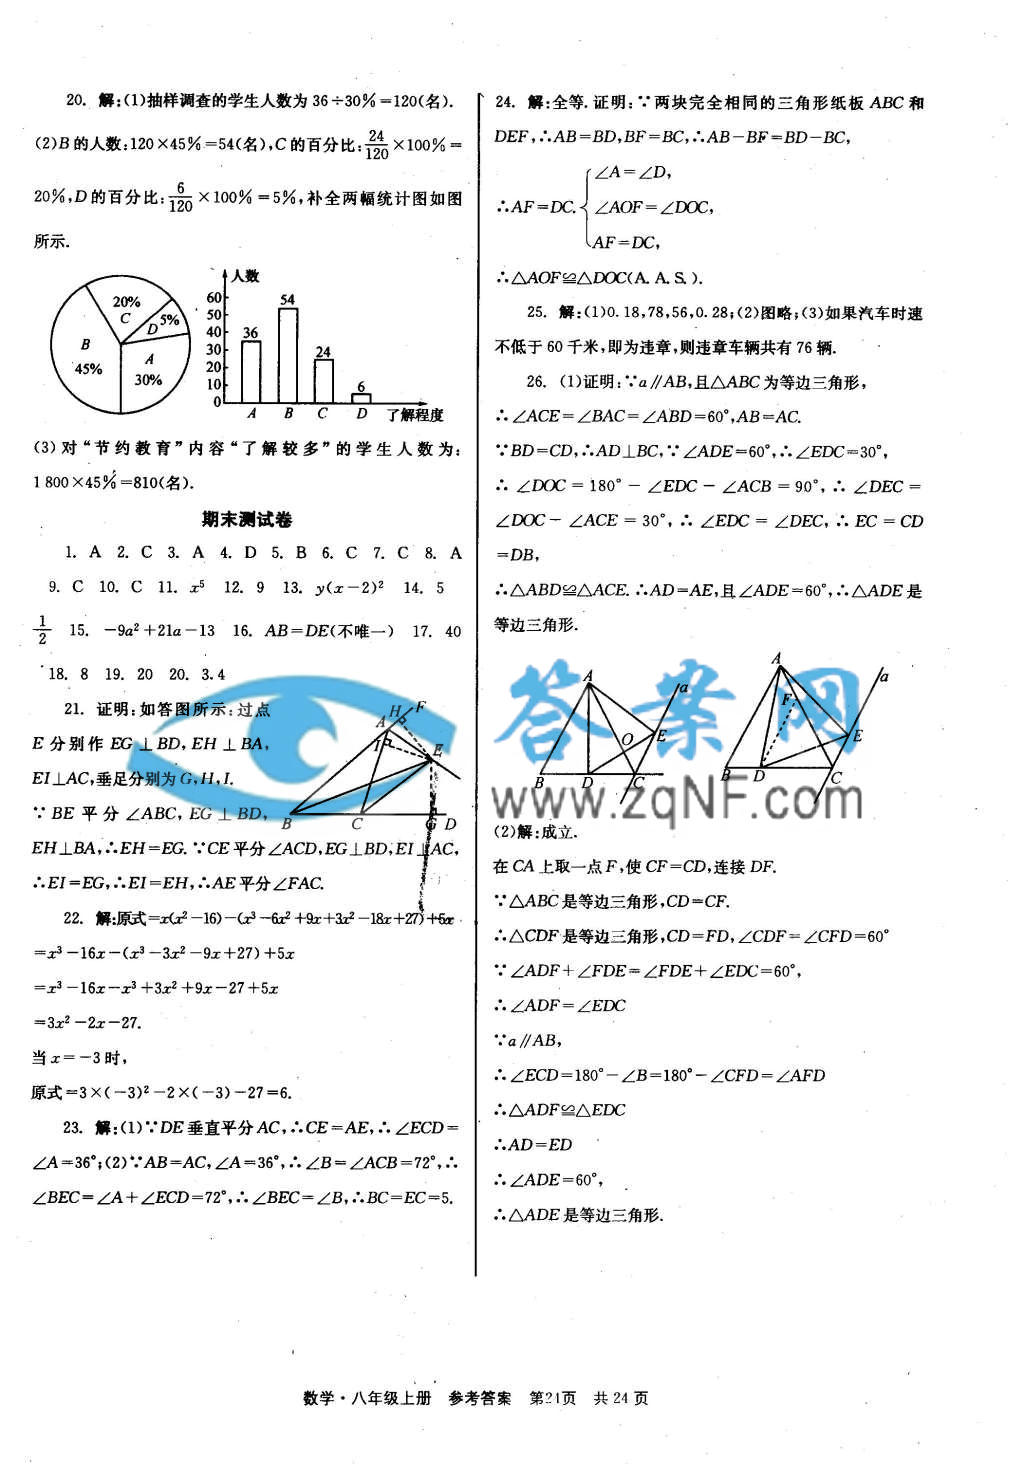 20. 解:(1)抽样调查的学生人数为 36÷30%=120(名).
(2)B 的人数:120×45%=54(名),C 的百分比:24/120×100%=
20%,D 的百分比:6/120×100%=5%,补全两幅统计图如图
所示.
20%
C
5%
D
B
45%
A
30%
人数
60
50
40
30
20
10
0
36
54
24
6
A B C D 了解程度
(3)对“节约教育”内容“了解较多”的学生人数为:
1 800×45%=810(名).
期末测试卷
1. A 2. C 3. A 4. D 5. B 6. C 7. C 8. A
9. C 10. C 11. x⁵ 12. 9 13. y(x-2)² 14. 5
1/2 15. -9a²+21a-13 16. AB=DE(不唯一) 17. 40
18. 8 19. 20 20. 3.4
21. 证明:如答图所示:过点
E 分别作 EG⊥BD,EH⊥BA,
EI⊥AC,垂足分别为 G,H,I.
∵BE 平分∠ABC,EG⊥BD,
EH⊥BA,∴EH=EG.∵CE 平分∠ACD,EG⊥BD,EI⊥AC,
∴EI=EG,∴EI=EH,∴AE 平分∠FAC.
A H F
I E
B C G D
22. 解:原式=x(x²-16)-(x³-6x²+9x+3x²-18x+27)+5x
=x³-16x-(x³-3x²-9x+27)+5x
=x³-16x-x³+3x²+9x-27+5x
=3x²-2x-27.
当 x=-3 时,
原式=3×(-3)²-2×(-3)-27=6.
23. 解:(1)∵DE 垂直平分 AC,∴CE=AE,∴∠ECD=
∠A=36°;(2)∵AB=AC,∠A=36°,∴∠B=∠ACB=72°,∴
∠BEC=∠A+∠ECD=72°,∴∠BEC=∠B,∴BC=EC=5.
24. 解:全等.证明:∵两块完全相同的三角形纸板 ABC 和
DEF,∴AB=BD,BF=BC,∴AB-BF=BD-BC,
∠A=∠D,
∴AF=DC.{∠AOF=∠DOC,
AF=DC,
∴△AOF≌△DOC(A.A.S.).
25. 解:(1)0.18,78,56,0.28;(2)图略;(3)如果汽车时速
不低于 60 千米,即为违章,则违章车辆共有 76 辆.
26. (1)证明:∵a∥AB,且△ABC 为等边三角形,
∴∠ACE=∠BAC=∠ABD=60°,AB=AC.
∵BD=CD,∴AD⊥BC,∵∠ADE=60°,∴∠EDC=30°,
∴∠DOC=180°-∠EDC-∠ACB=90°,∴∠DEC=
∠DOC-∠ACE=30°,∴∠EDC=∠DEC,∴EC=CD
=DB,
∴△ABD≌△ACE.∴AD=AE,且∠ADE=60°,∴△ADE 是
等边三角形.
A a
O E
B D C
A a
F E
B D C
答案网
www.zqNF.com
(2)解:成立.
在 CA 上取一点 F,使 CF=CD,连接 DF.
∵△ABC 是等边三角形,CD=CF.
∴△CDF 是等边三角形,CD=FD,∠CDF=∠CFD=60°
∵∠ADF+∠FDE=∠FDE+∠EDC=60°,
∴∠ADF=∠EDC
∵a∥AB,
∴∠ECD=180°-∠B=180°-∠CFD=∠AFD
∴△ADF≌△EDC
∴AD=ED
∴∠ADE=60°,
∴△ADE 是等边三角形.
数学·八年级上册 参考答案 第21页 共 24 页